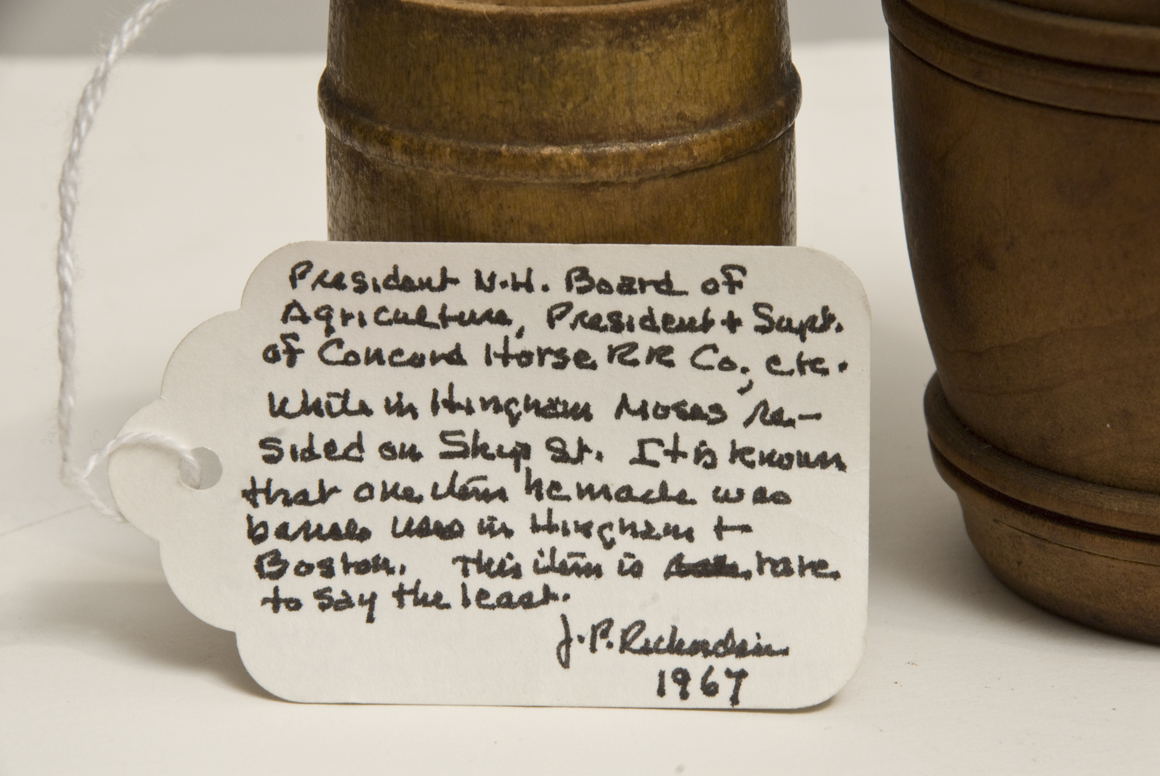 President N.H. Board of
Agriculture, President & Supt.
of Concord Horse RR Co., etc.
While in Hingham Moses re-
sided on Ship St. It is known
that one item he made was
in Hingham &
Boston. This item is rare
to say the least.
J. P. Richardson
1967